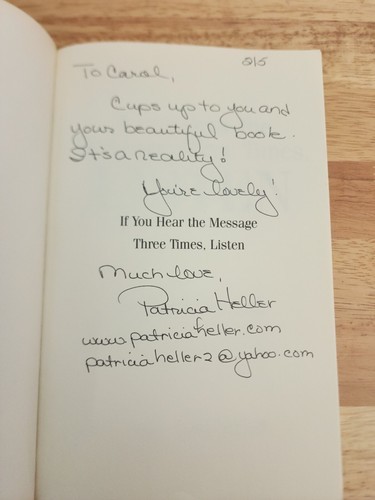 2/5
To Carol,
Cups up to you and
your beautiful book.
It's a reality!
You're lovely!
If You Hear the Message
Three Times, Listen
Much love,
Patricia Heller
www.patriciaheller.com
patriciaheller2@yahoo.com